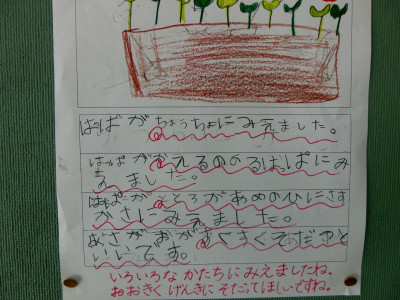 はっぱがちょうちょにみえました。
はっぱがかえるののるはっぱにみ
えました。
はっぱがととろがあめのひにさす
かさにみえました。
あさがおがすくすくそだつと
いいです。
いろいろな かたちに みえましたね。
おおきく げんきに そだってほしいですね。